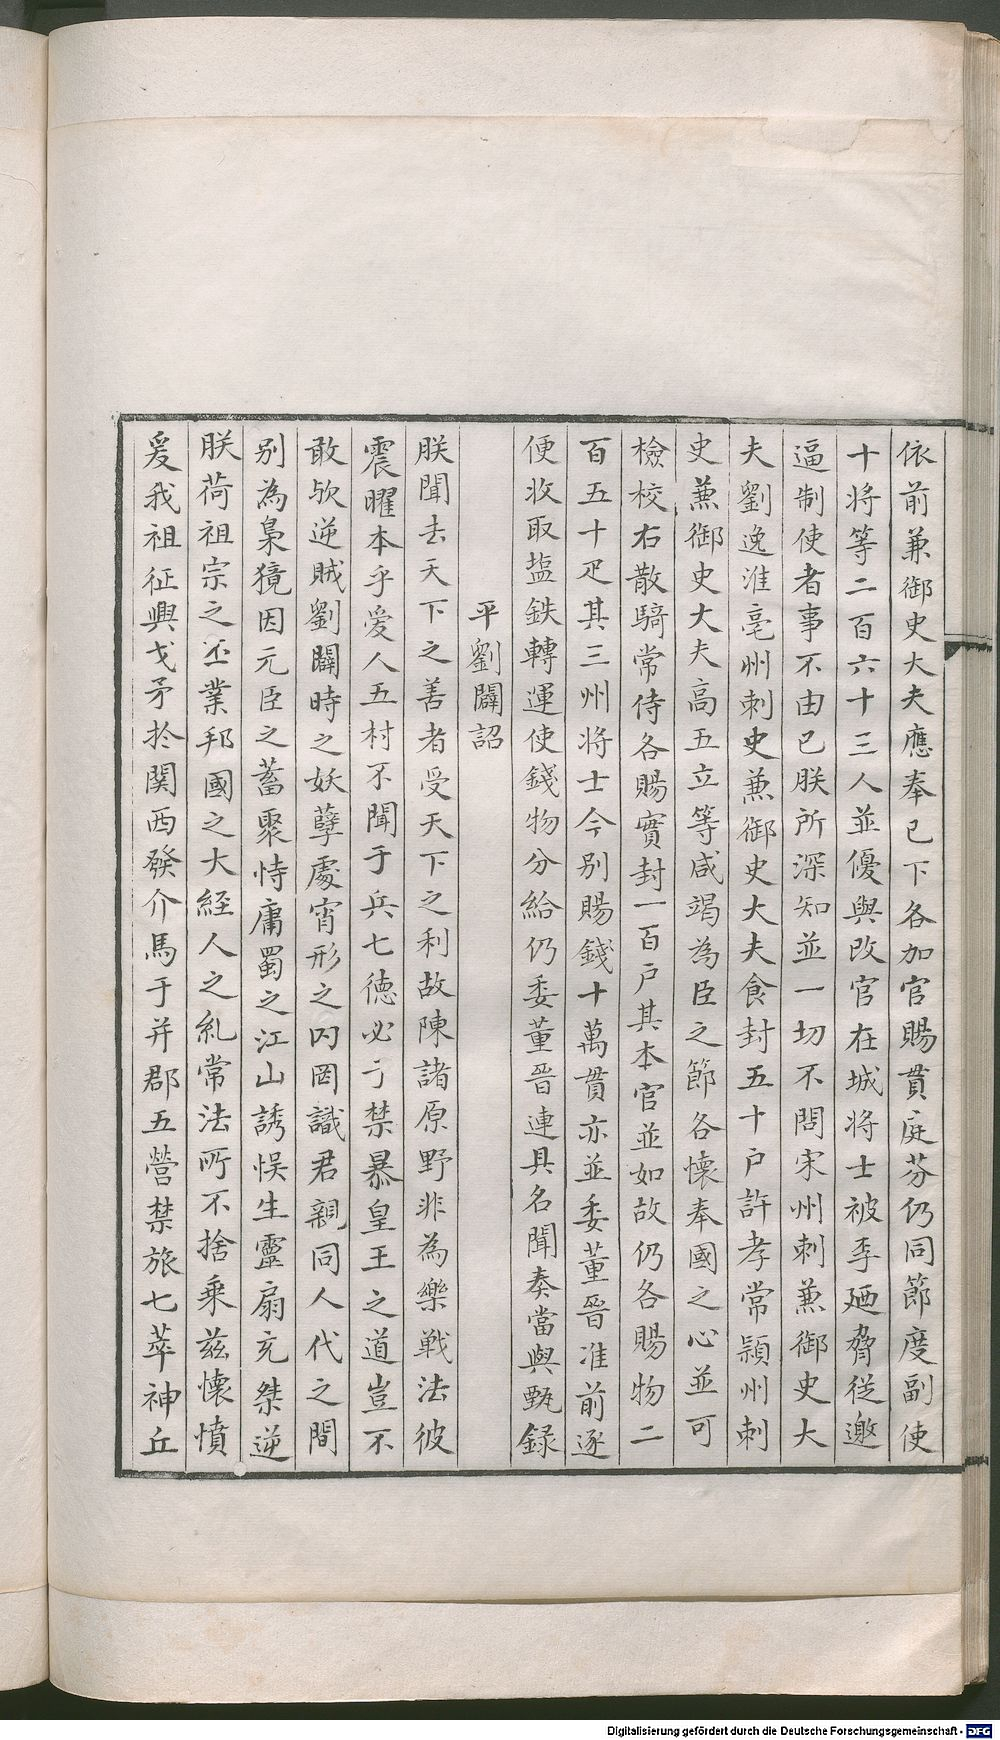 依前兼御史大夫應奉已下各加官賜貫庭芬仍同節度副使
十將等二百六十三人並優與改官在城將士被李廼脅從邀
逼制使者事不由已朕所深知並一切不問宋州刺兼御史大
夫劉逸淮亳州刺史兼御史大夫食封五十户許孝常頴州刺
史兼御史大夫高五立等咸竭為臣之節各懷奉國之心並可
檢校右散騎常侍各賜實封一百户其本官並如故仍各賜物二
百五十疋其三州將士今别賜錢十萬貫亦並委董晉准前逐
便收取塩鉄轉運使錢物分給仍委董晉連具名聞奏當與甄録
平劉闢詔
朕聞去天下之善者受天下之利故陳諸原野非為樂戦法彼
震曜本乎愛人五材不聞于兵七德必亍禁暴皇王之道豈不
敢欤逆賊劉闢時之妖孽處宵形之内罔識君親同人代之間
别為梟獍因元臣之蓄聚恃庸蜀之江山誘悮生靈扇充桀逆
朕荷祖宗之丕業邦國之大經人之乱常法所不捨乗兹懷憤
爰我祖征興戈矛扵関西發介馬于并郡五營禁旅七萃神丘
Digitalisierung gefördert durch die Deutsche Forschungsgemeinschaft - DFG